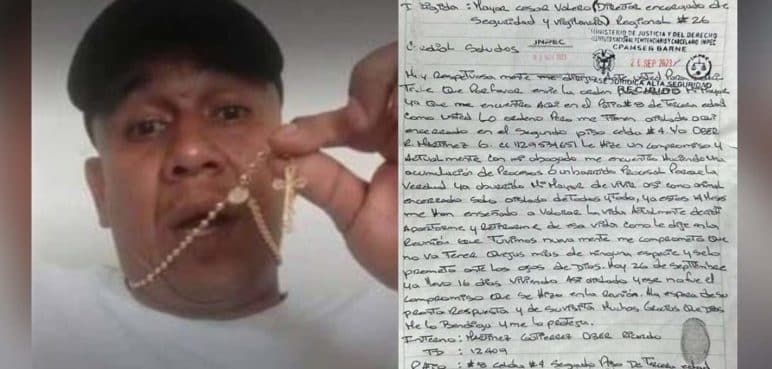 Dirigida: Mayor Cesar Valero (Director encargado de
Seguridad y vigilancia) Regional #26
MINISTERIO DE JUSTICIA Y DEL DERECHO
INSTITUTO NACIONAL PENITENCIARIO Y CARCELARIO INPEC
CPAMSEB BARNE
Cordial Saludos
INPEC
26 SEP. 2023
JURIDICA ALTA SEGURIDAD
RECIBIDO
Muy Respetuosa mente me dirijo
que Porfavor envie la orden mi Mayor
Ya Que me encuentro Aqui en el Patio #8 de Tercera edad
como Usted Lo ordeno Pero me tienen aislado aqui
encerrado en el Segundo piso celda #4. Yo OBER
R. Martinez G. cc 1124534651 Le Hize un compromiso y
Actual mente con mi abogado me encuentro Haciendo una
acumulación de Procesos o un barrido Procesal Porque la
Verdad ya aburrido Mi Mayor de vivir asi como animal
encerrado Solo aislado de todos y todo, ya estos Meses
me Han enseñado a Valorar la vida Actualmente decidi
Apartarme y Retirarme de esa vida como le dije en la
Reunión Que Tuvimos nueva mente me comprometo Que
no va Tener Quejas mias de ninguna especie y se lo
prometo ante los ojos de Dios. Hoy 26 de septiembre
ya llevo 16 dias viviendo Asi aislado y ese no fue el
compromiso Que se Hizo en la reunión. A la espera de su
pronta Respuesta y de su visita Muchas Gracias Que Dios
Me lo Bendiga y me lo proteja.
Interno: Martinez Gutierrez OBER Ricardo
TD: 12409
Patio: #8 celda #4 Segundo Piso De Tercera edad